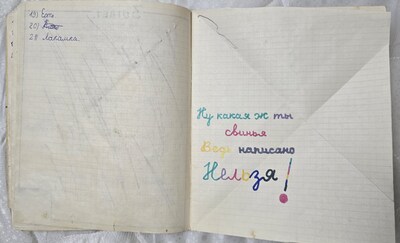 19) Ёлт
20)
28 Лакамка
Ну какая ж ты
свинья
Ведь написано
Нельзя!